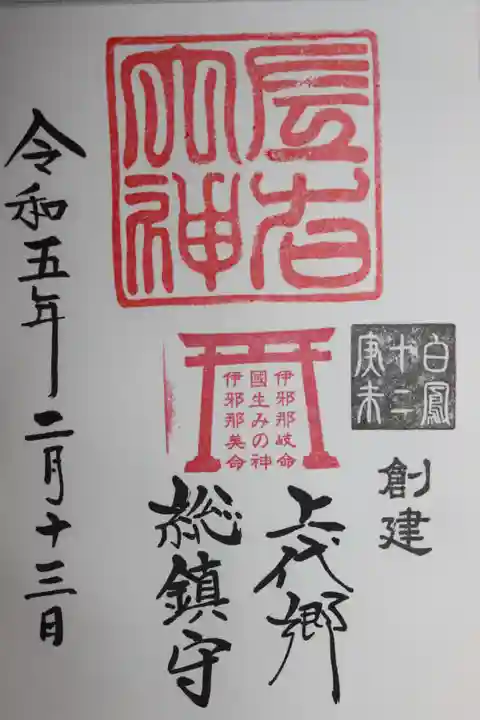 右
大神
白鳳
十二
庚未
創建
伊邪那岐命
國生みの神
伊邪那美命
上代郷
総鎮守
令和五年二月十三日